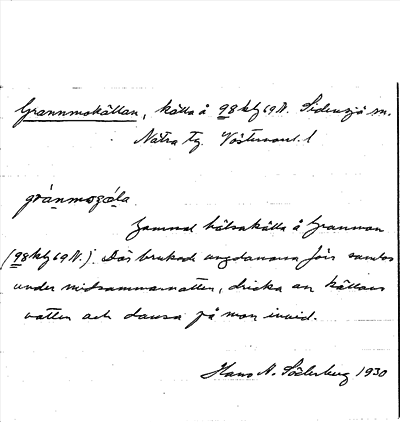 Grannmokällan, källa å 98 kly 69 N. Sidensjö sn.
Nätra tg. Västernorl. l
grànmogǽla
Gammal hälsokälla å Granmon
(98 kly 69 N.). Där brukade ungdomarna förr samlas
under midsommarnatten, dricka av källans
vatten och dansa på mon invid.
Hans N. Söderberg 1930